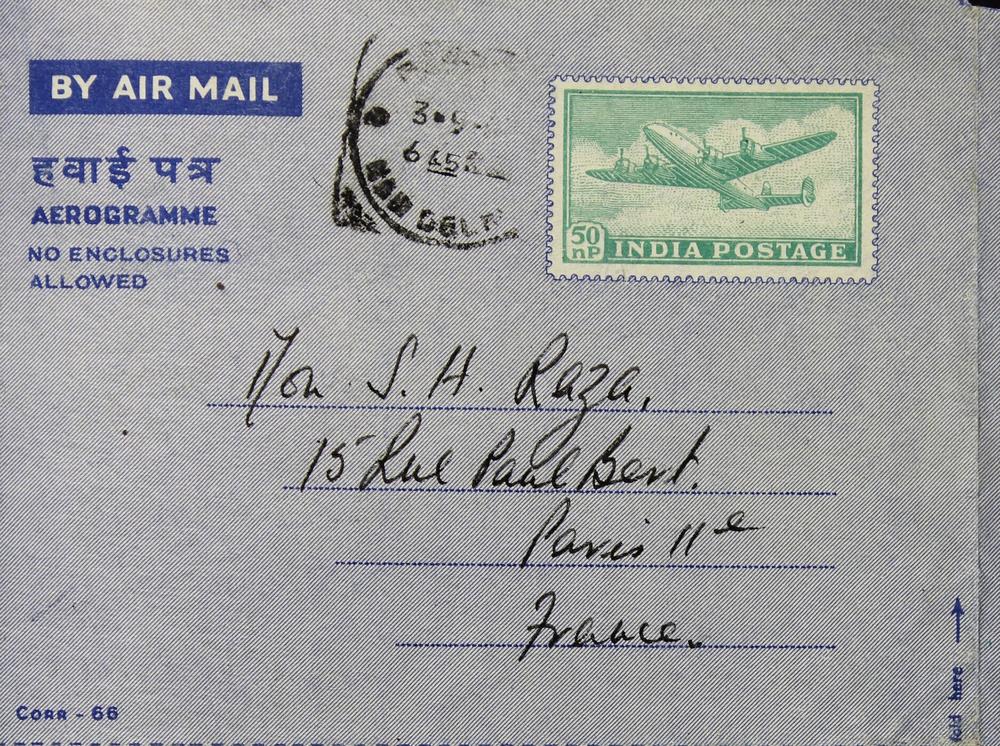 BY AIR MAIL
हवाई पत्र
AEROGRAMME
NO ENCLOSURES
ALLOWED
NEW DELHI
50
nP
INDIA POSTAGE
Mon S. H. Raza,
15 Rue Paul Bert.
Paris 11e
France.
CORR - 66
fold here